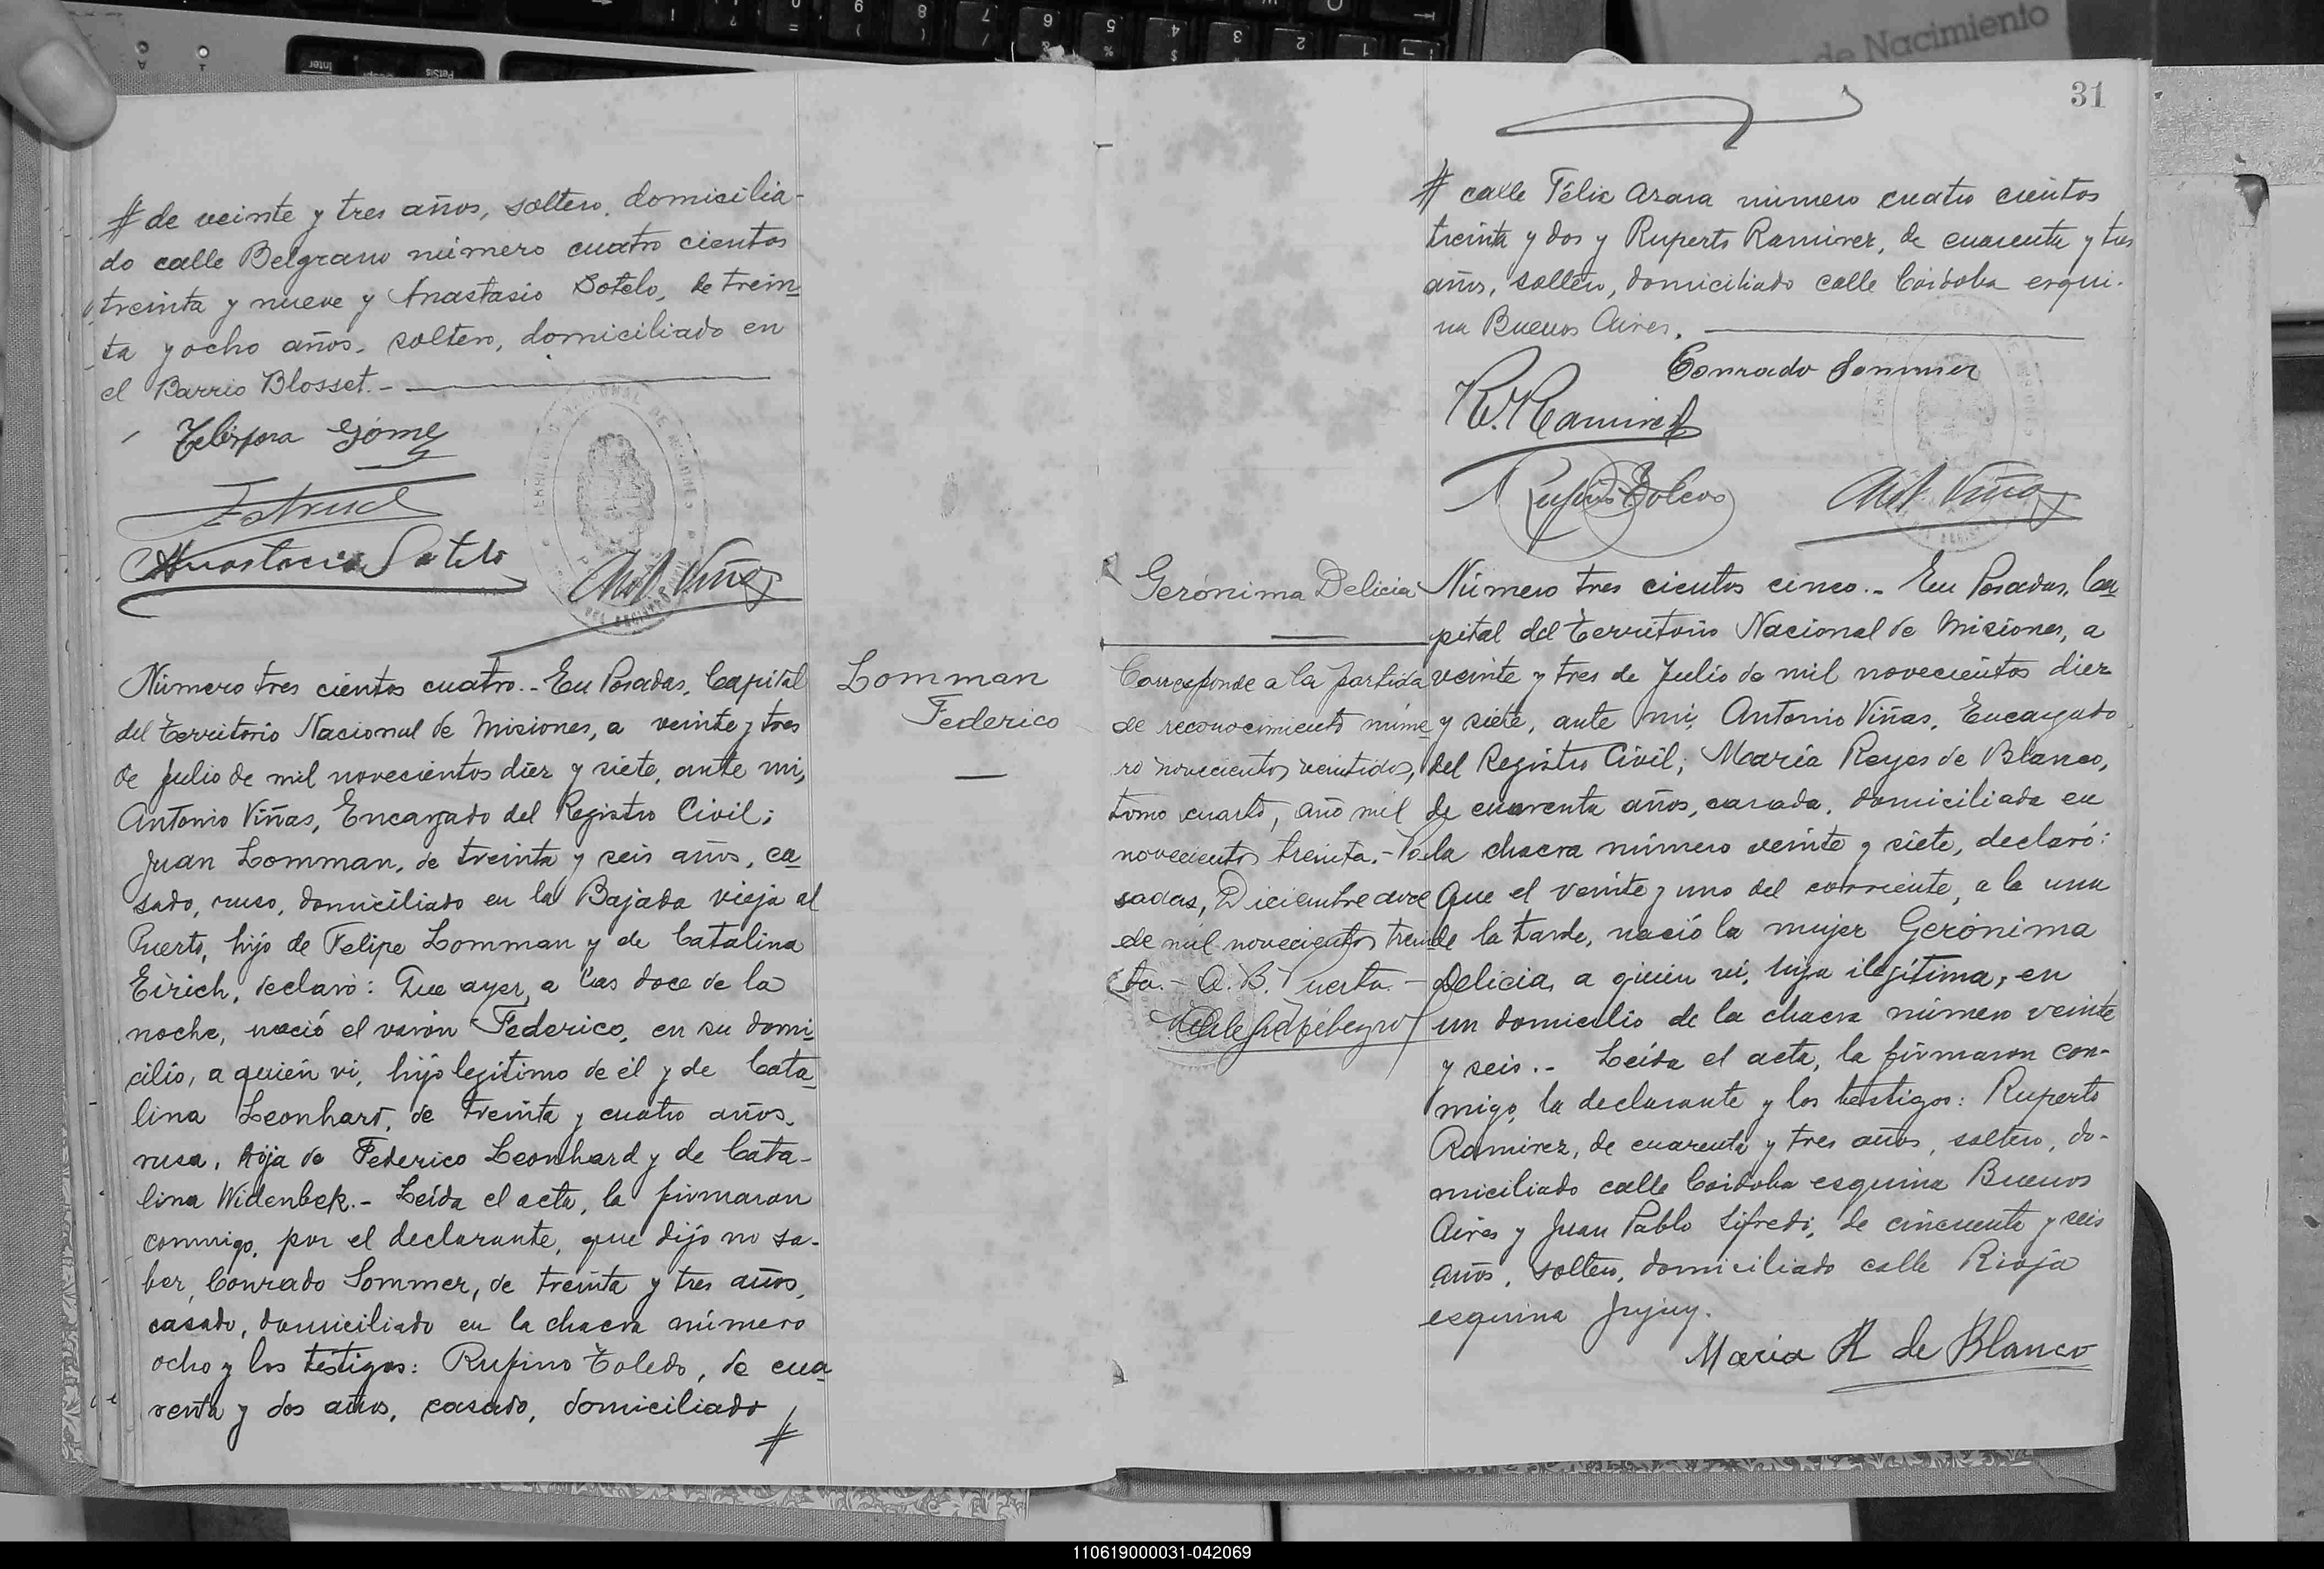 # de veinte y tres años, soltero, domicilia-
do calle Belgrano número cuatro cientos
treinta y nueve y Anastasio Sotelo, de trein-
ta y ocho años, soltero, domiciliado en
el Barrio Blosset.-
Telésfora Gómez
Estruch
Anastacio Sotelo
Ant. Viñas
Número tres cientos cuatro.- En Posadas, Capital
del Territorio Nacional de Misiones, a veinte y tres
de Julio de mil novecientos diez y siete, ante mi,
Antonio Viñas, Encargado del Registro Civil;
Juan Lomman, de treinta y seis años, ca-
sado, ruso, domiciliado en la Bajada vieja al
Puerto, hijo de Felipe Lomman y de Catalina
Eirich, declaró: Que ayer, a las doce de la
noche, nació el varón Federico, en su domi-
cilio, a quién vi, hijo legítimo de él y de Cata-
lina Leonhard, de treinta y cuatro años,
rusa, hija de Federico Leonhard y de Cata-
lina Widenbek.- Leída el acta, la firmaron
conmigo, por el declarante, que dijo no sa-
ber, Conrado Sommer, de treinta y tres años,
casado, domiciliado en la chacra número
ocho y los testigos: Rufino Toledo, de cua-
renta y dos años, casado, domiciliado
#
Lomman
Federico
31
# calle Félix Azara número cuatro cientos
treinta y dos y Ruperto Ramirez, de cuarenta y tres
años, soltero, domiciliado calle Córdoba esqui-
na Buenos Aires.
Conrado Sommer
R. Ramirez
Rufino Toledo
Ant. Viñas
Gerónima Delicia
Corresponde a la partida
de reconocimiento núme-
ro novecientos veintidos,
tomo cuarto, año mil
novecientos treinta.- Po-
sadas, Diciembre doce
de mil novecientos trein-
ta.- A. B. Puerta.-
Número tres cientos cinco.- En Posadas, Ca-
pital del Territorio Nacional de Misiones, a
veinte y tres de Julio de mil novecientos diez
y siete, ante mi, Antonio Viñas, Encargado
del Registro Civil; María Reyes de Blanco,
de cuarenta años, casada, domiciliada en
la chacra número veinte y siete, declaró:
Que el veinte y uno del corriente, a la una
de la tarde, nació la mujer Gerónima
Delicia, a quien vi, hija ilegítima, en
un domicilio de la chacra número veinte
y seis.- Leída el acta, la firmaron con-
migo, la declarante y los testigos: Ruperto
Ramirez, de cuarenta y tres años, soltero, do-
miciliado calle Córdoba esquina Buenos
Aires y Juan Pablo Sifredi, de cincuenta y seis
años, soltero, domiciliado calle Rioja
esquina Jujuy.
Maria R de Blanco
de Nacimiento
110619000031-042069